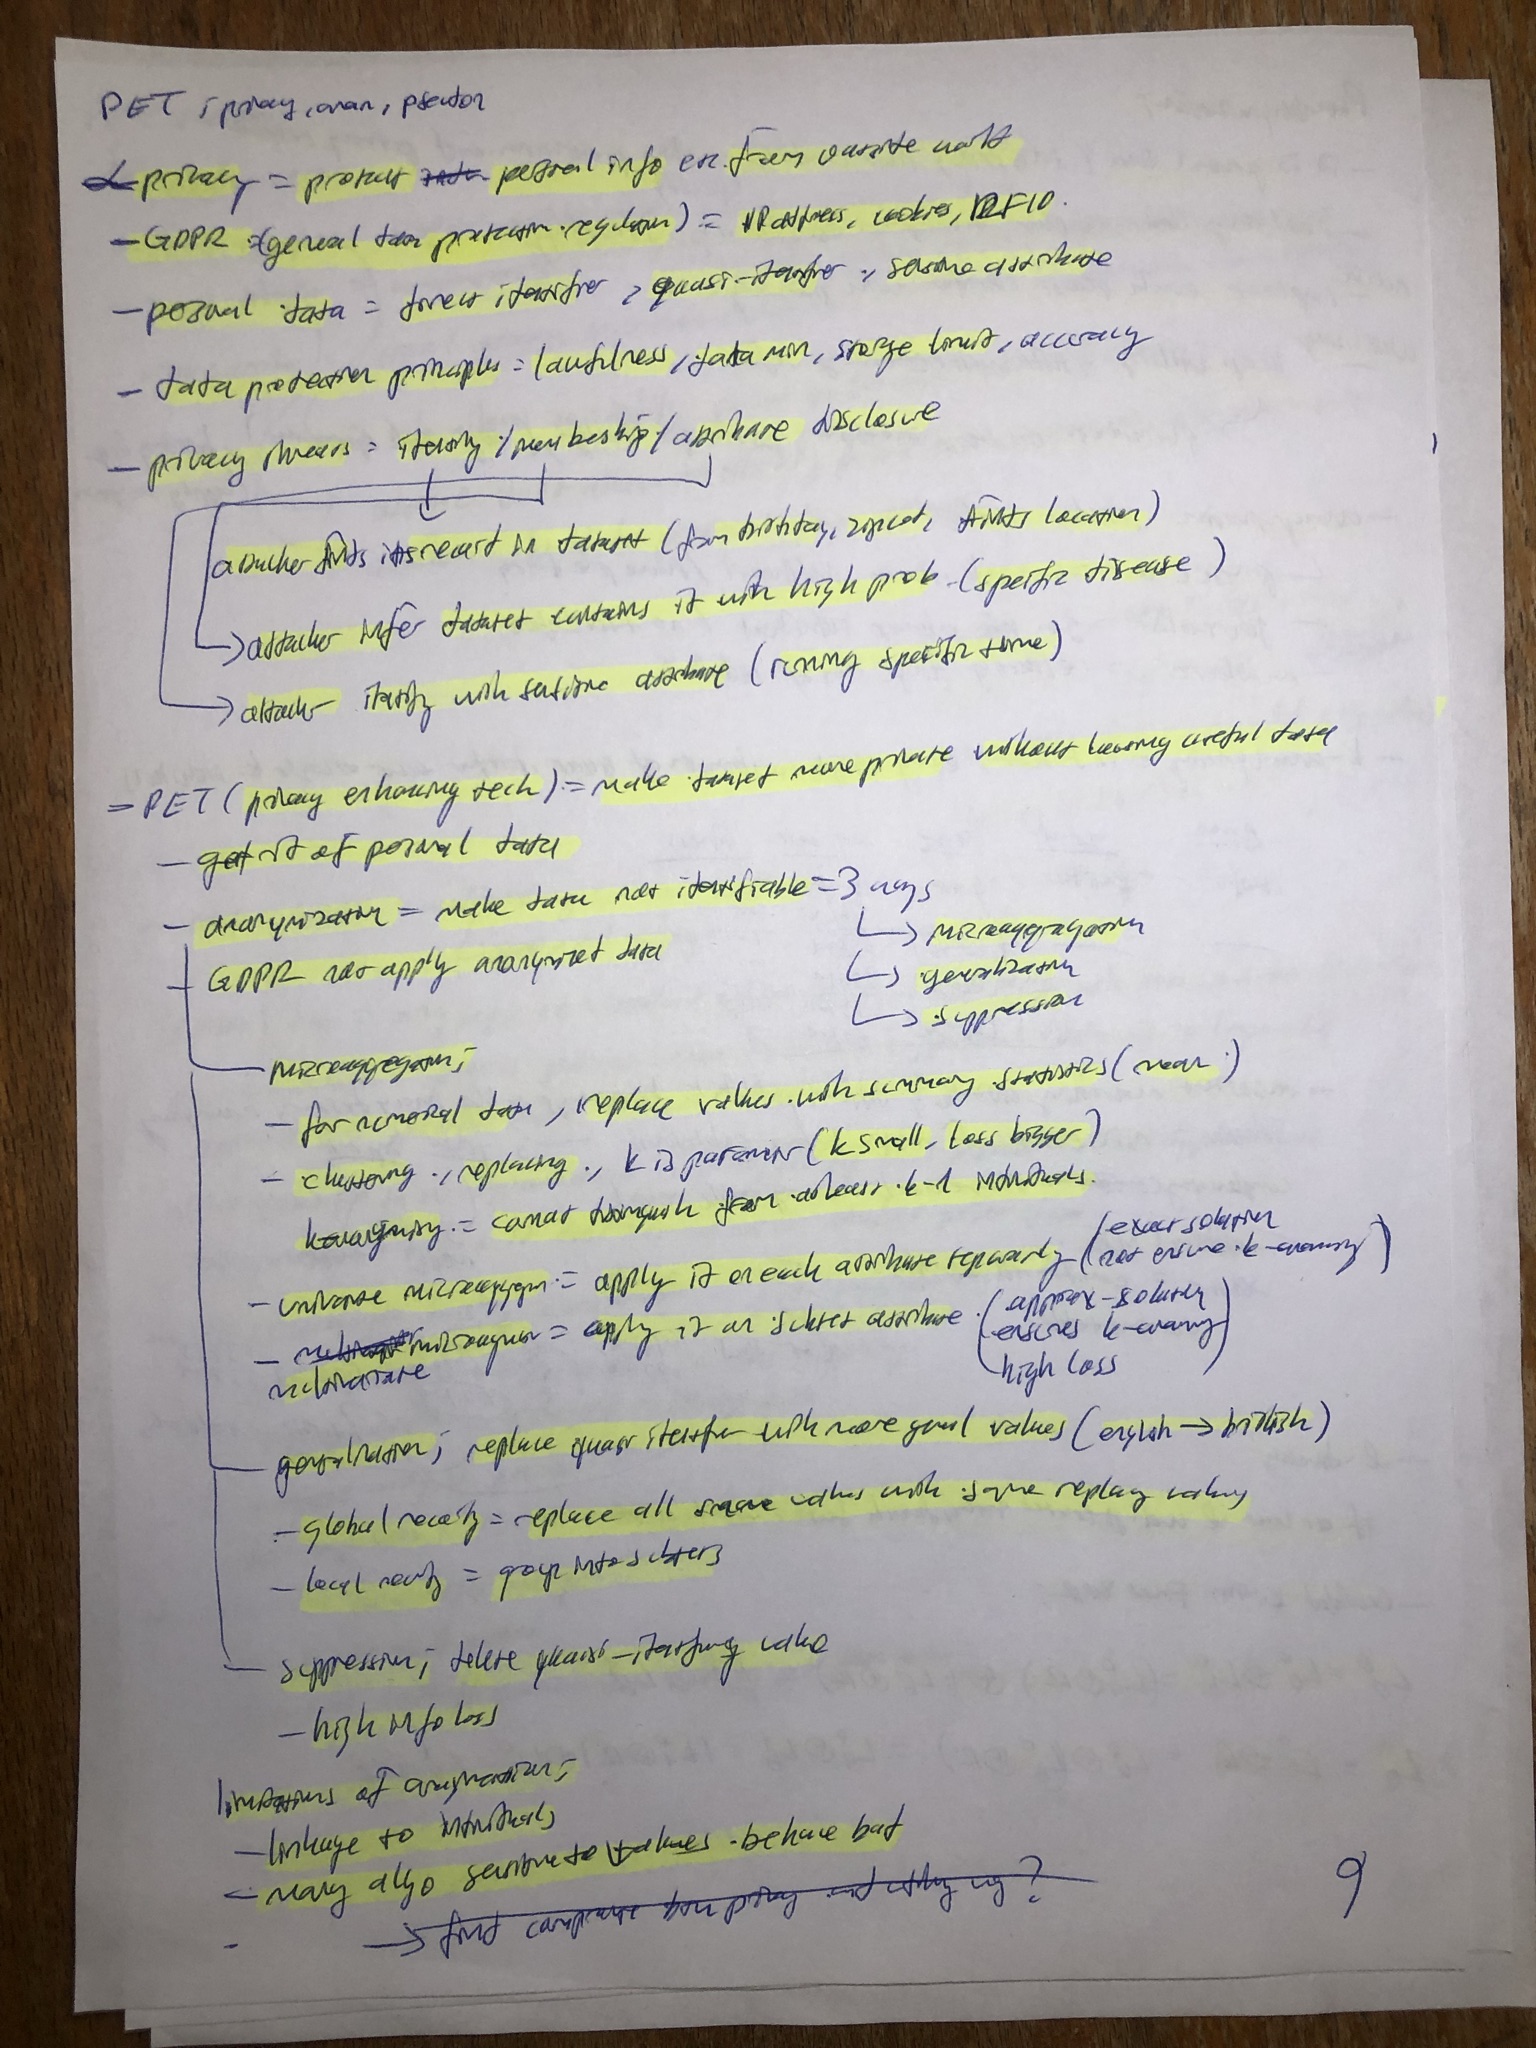 PET ; privacy, anon, pseudon
- privacy = protect data personal info etc. from outside world
- GDPR (general data protection regulation) = IP address, cookies, RFID.
- personal data = direct identifier, quasi-identifier, sensitive attribute
- data protection principles = lawfulness, data min, storage limit, accuracy
- privacy threats = identity / membership / attribute disclosure
attacker finds its record in dataset (from birthday, zipcode, finds location)
attacker infer dataset contains it with high prob. (specific disease)
attacker identify with sensitive attribute (running specific time)
= PET (privacy enhancing tech) = make dataset more private without loosing useful data
- get rid of personal data
- anonymization = make data not identifiable = 3 ways
microaggregation
generalization
suppression
- GDPR not apply anonymized data
microaggregation;
- for numerical data, replace values with summary statistics (mean.)
- clustering., replacing., k is parameter (k small, loss bigger)
k-anonymity = cannot distinguish from at least k-1 individuals.
- univariate microaggregation = apply it on each attribute separately (exact solution
not ensure k-anonymity)
- microaggregation = apply it on subset attribute (approx-solution
multivariate
ensures k-anonymity
high loss)
generalization; replace quasi identifier with more general values (english → british)
- global recoding = replace all same values with same replacing values
- local recoding = group into subsets
suppression; delete quasi-identifying value
- high info loss
limitations of anonymization;
- linkage to individuals
- many algo sensitive to values behave bad
-
→ find compromise btw privacy and utility ?
9